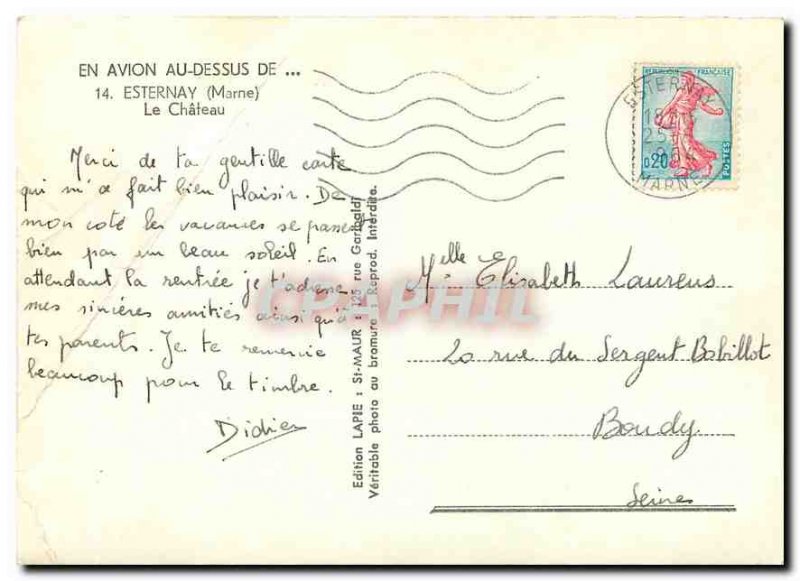 EN AVION AU-DESSUS DE ...
14. ESTERNAY (Marne)
Le Château
Merci de ta gentille carte
qui m'a fait bien plaisir. De
mon coté les vacances se passent
bien par un beau soleil. En
attendant la rentrée je t'adresse
mes sincéres amitiés ainsi qu'à
tes parents. Je te remercie
beaucoup pour le timbre.
Didier
Edition LAPIE : St-MAUR : 125 rue Garibaldi
Véritable photo au bromure - Reprod. Interdite.
REPUBLIQUE FRANÇAISE
0,20
POSTES
ESTERNAY
MARNE
Melle Elisabeth Laurens
20 rue du Sergent Bobillot
Bondy
Seine
CPAPHIL